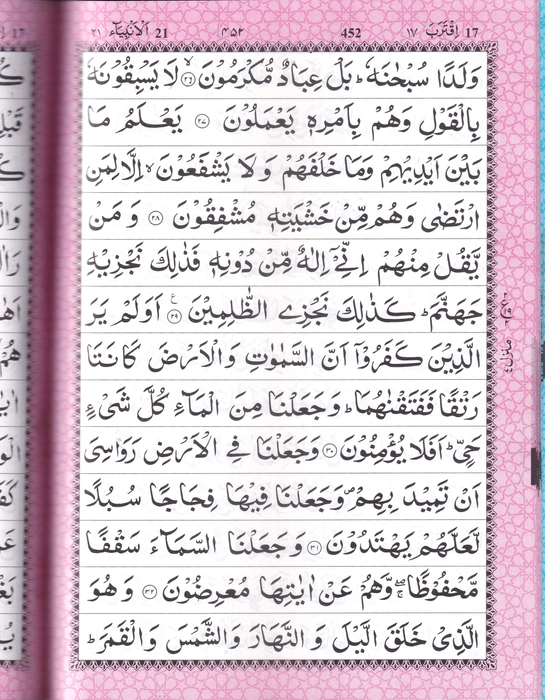 17 اِقْتَرَبَ ١٧ 452 ٤٥٢ 21 اَلْاَنْۢبِيَآء ٢١
وَلَدًا سُبْحٰنَهٗ ؕ بَلْ عِبَادٌ مُّكْرَمُوْنَ ۙ﴿۲۶﴾ لَا يَسْبِقُوْنَهٗ
بِالْقَوْلِ وَهُمْ بِاَمْرِهٖ يَعْمَلُوْنَ ﴿۲۷﴾ يَعْلَمُ مَا
بَيْنَ اَيْدِيْهِمْ وَمَا خَلْفَهُمْ وَلَا يَشْفَعُوْنَ ۙ اِلَّا لِمَنِ
ارْتَضٰى وَهُمْ مِّنْ خَشْيَتِهٖ مُشْفِقُوْنَ ﴿۲۸﴾ وَمَنْ
يَّقُلْ مِنْهُمْ اِنِّىْۤ اِلٰهٌ مِّنْ دُوْنِهٖ فَذٰلِكَ نَجْزِيْهِ
جَهَنَّمَ ؕ كَذٰلِكَ نَجْزِى الظّٰلِمِيْنَ ﴿۲۹﴾ۧ اَوَلَمْ يَرَ
الَّذِيْنَ كَفَرُوْۤا اَنَّ السَّمٰوٰتِ وَالْاَرْضَ كَانَتَا
رَتْقًا فَفَتَقْنٰهُمَا ؕ وَجَعَلْنَا مِنَ الْمَآءِ كُلَّ شَىْءٍ
حَىٍّ ؕ اَفَلَا يُؤْمِنُوْنَ ﴿۳۰﴾ وَجَعَلْنَا فِى الْاَرْضِ رَوَاسِىَ
اَنْ تَمِيْدَ بِهِمْ ۪ وَجَعَلْنَا فِيْهَا فِجَاجًا سُبُلًا
لَّعَلَّهُمْ يَهْتَدُوْنَ ﴿۳۱﴾ وَجَعَلْنَا السَّمَآءَ سَقْفًا
مَّحْفُوْظًا ۖۚ وَّهُمْ عَنْ اٰيٰتِهَا مُعْرِضُوْنَ ﴿۳۲﴾ وَهُوَ
الَّذِىْ خَلَقَ الَّيْلَ وَالنَّهَارَ وَالشَّمْسَ وَالْقَمَرَ ؕ
منزل ٤